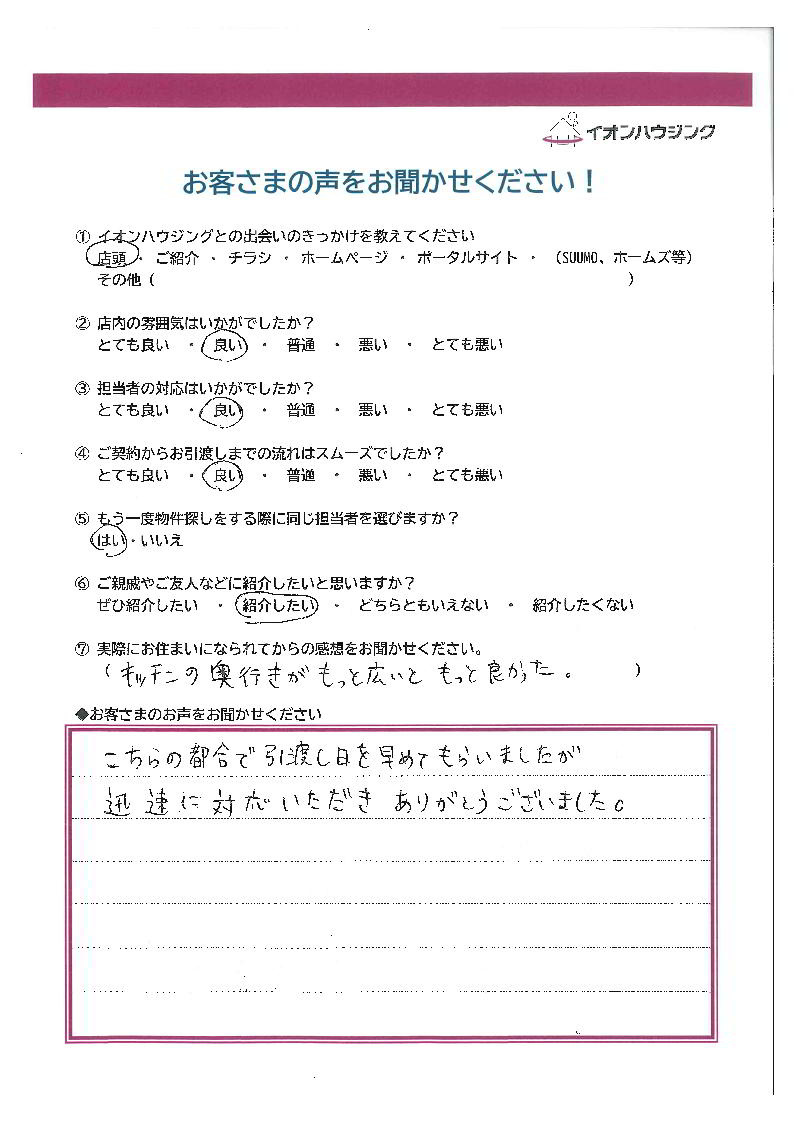 イオンハウジング
お客さまの声をお聞かせください!
① イオンハウジングとの出会いのきっかけを教えてください
店頭 ・ ご紹介 ・ チラシ ・ ホームページ ・ ポータルサイト ・ (SUUMO、ホームズ等)
その他( )
② 店内の雰囲気はいかがでしたか?
とても良い ・ 良い ・ 普通 ・ 悪い ・ とても悪い
③ 担当者の対応はいかがでしたか?
とても良い ・ 良い ・ 普通 ・ 悪い ・ とても悪い
④ ご契約からお引渡しまでの流れはスムーズでしたか?
とても良い ・ 良い ・ 普通 ・ 悪い ・ とても悪い
⑤ もう一度物件探しをする際に同じ担当者を選びますか?
はい・いいえ
⑥ ご親戚やご友人などに紹介したいと思いますか?
ぜひ紹介したい ・ 紹介したい ・ どちらともいえない ・ 紹介したくない
⑦ 実際にお住まいになられてからの感想をお聞かせください。
(キッチンの奥行きがもっと広いともっと良かった。 )
◆お客さまのお声をお聞かせください
こちらの都合で引渡し日を早めてもらいましたが
迅速に対応いただきありがとうございました。